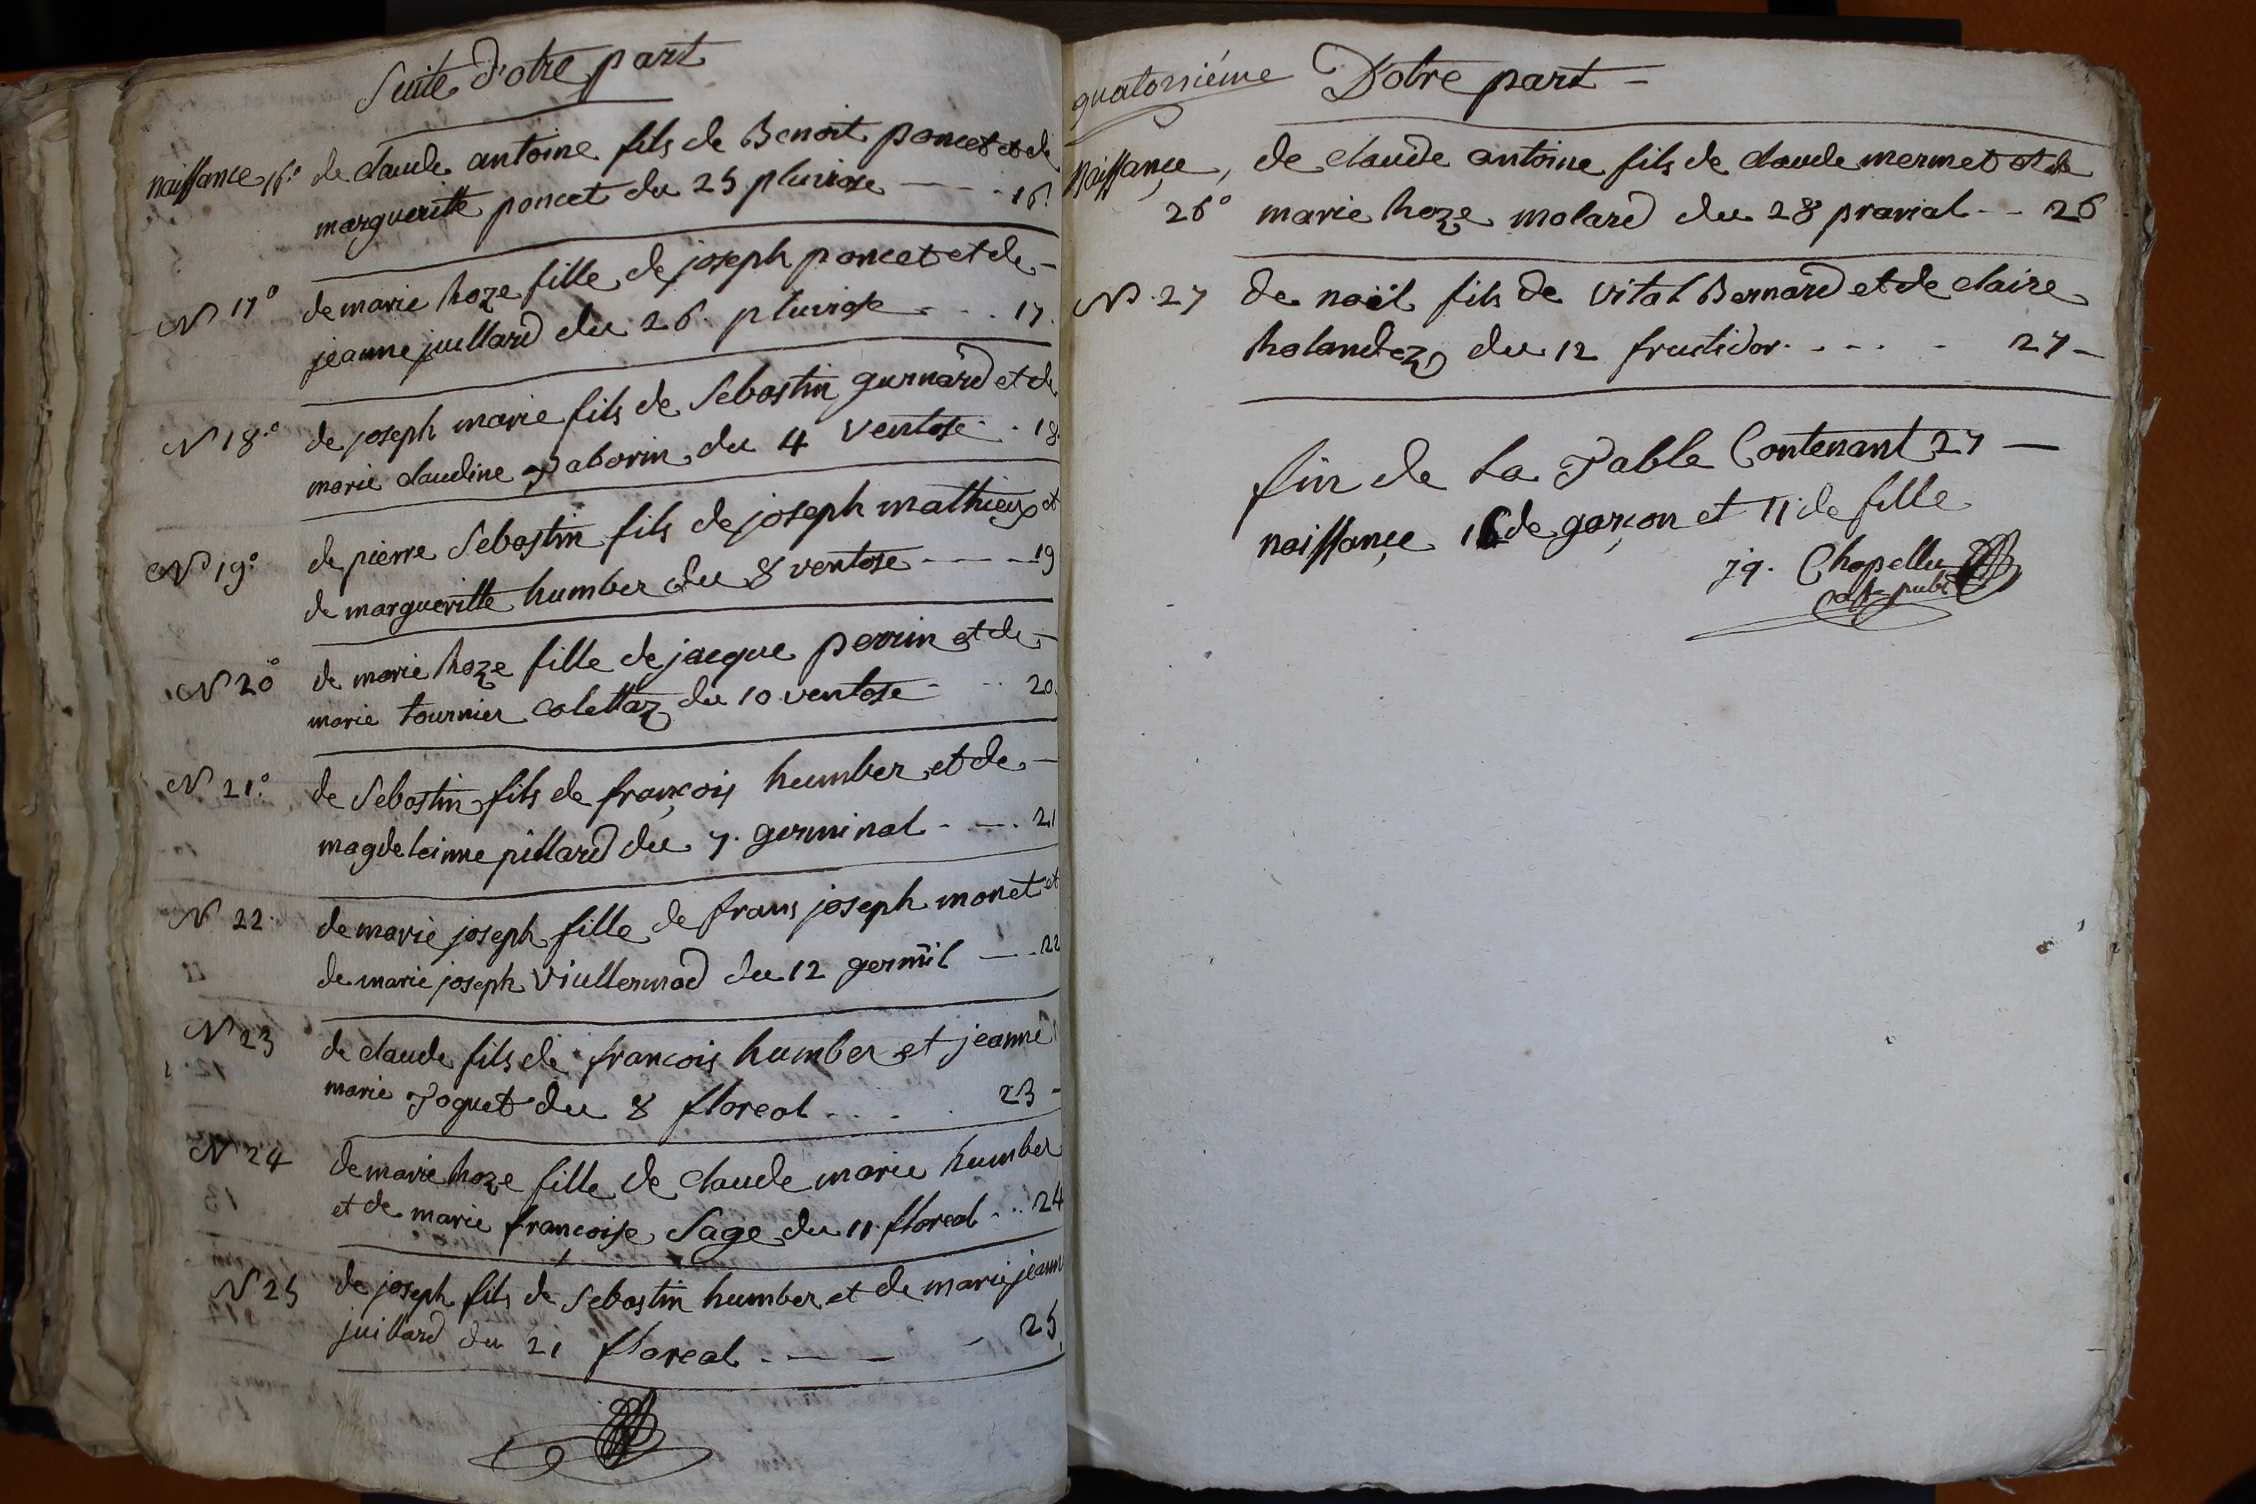 Suite d'otre part
naissance 16.° de claude antoine fils de Benoit poncet et de
margueritte poncet du 25 pluviose - - - 16.
N 17° de marie hoze fille de joseph poncet et de -
jeanne juillard du 26 pluviose - . . 17.
N 18.° de joseph marie fils de Sebastin gurnard et de
marie claudine Paborin du 4 ventose . . 18.
N 19.° de pierre Sebastin fils de joseph mathieux et
de margueritte humber du 8 ventose - - - 19
N 20° de marie hoze fille de jacque perrin et de -
marie tournier colettaz du 10 ventose - . . 20.
N 21.° de Sebastin fils de françois humber et de -
magdeleinne pillard du 7. germinal . - . 21
N 22. de marie joseph fille de frans joseph monet et
de marie joseph Viullermod du 12 germil - - . 22
N 23 de claude fils de francois humber et jeanne
marie Poguet du 8 floreal . . . . 23 -
N 24 de marie hoze fille de claude marie humber
et de marie francoise Sage du 11 floreal . . . 24
N 25 de joseph fils de Sebastin humber et de marie jeanne
juillard du 21 floreal . - - - 25
quatorsiéme D'otre part -
Naissançe, de claude antoine fils de claude mermet et de
26° marie hoze molard du 28 prarial - - 26
N. 27 de noël fils de vital Bernard et de claire
holandez du 12 fructidor . . . . - 27 -
fin de La Table Contenant 27 -
naissançe 16 de garçon et 11 de fille
Chapellu